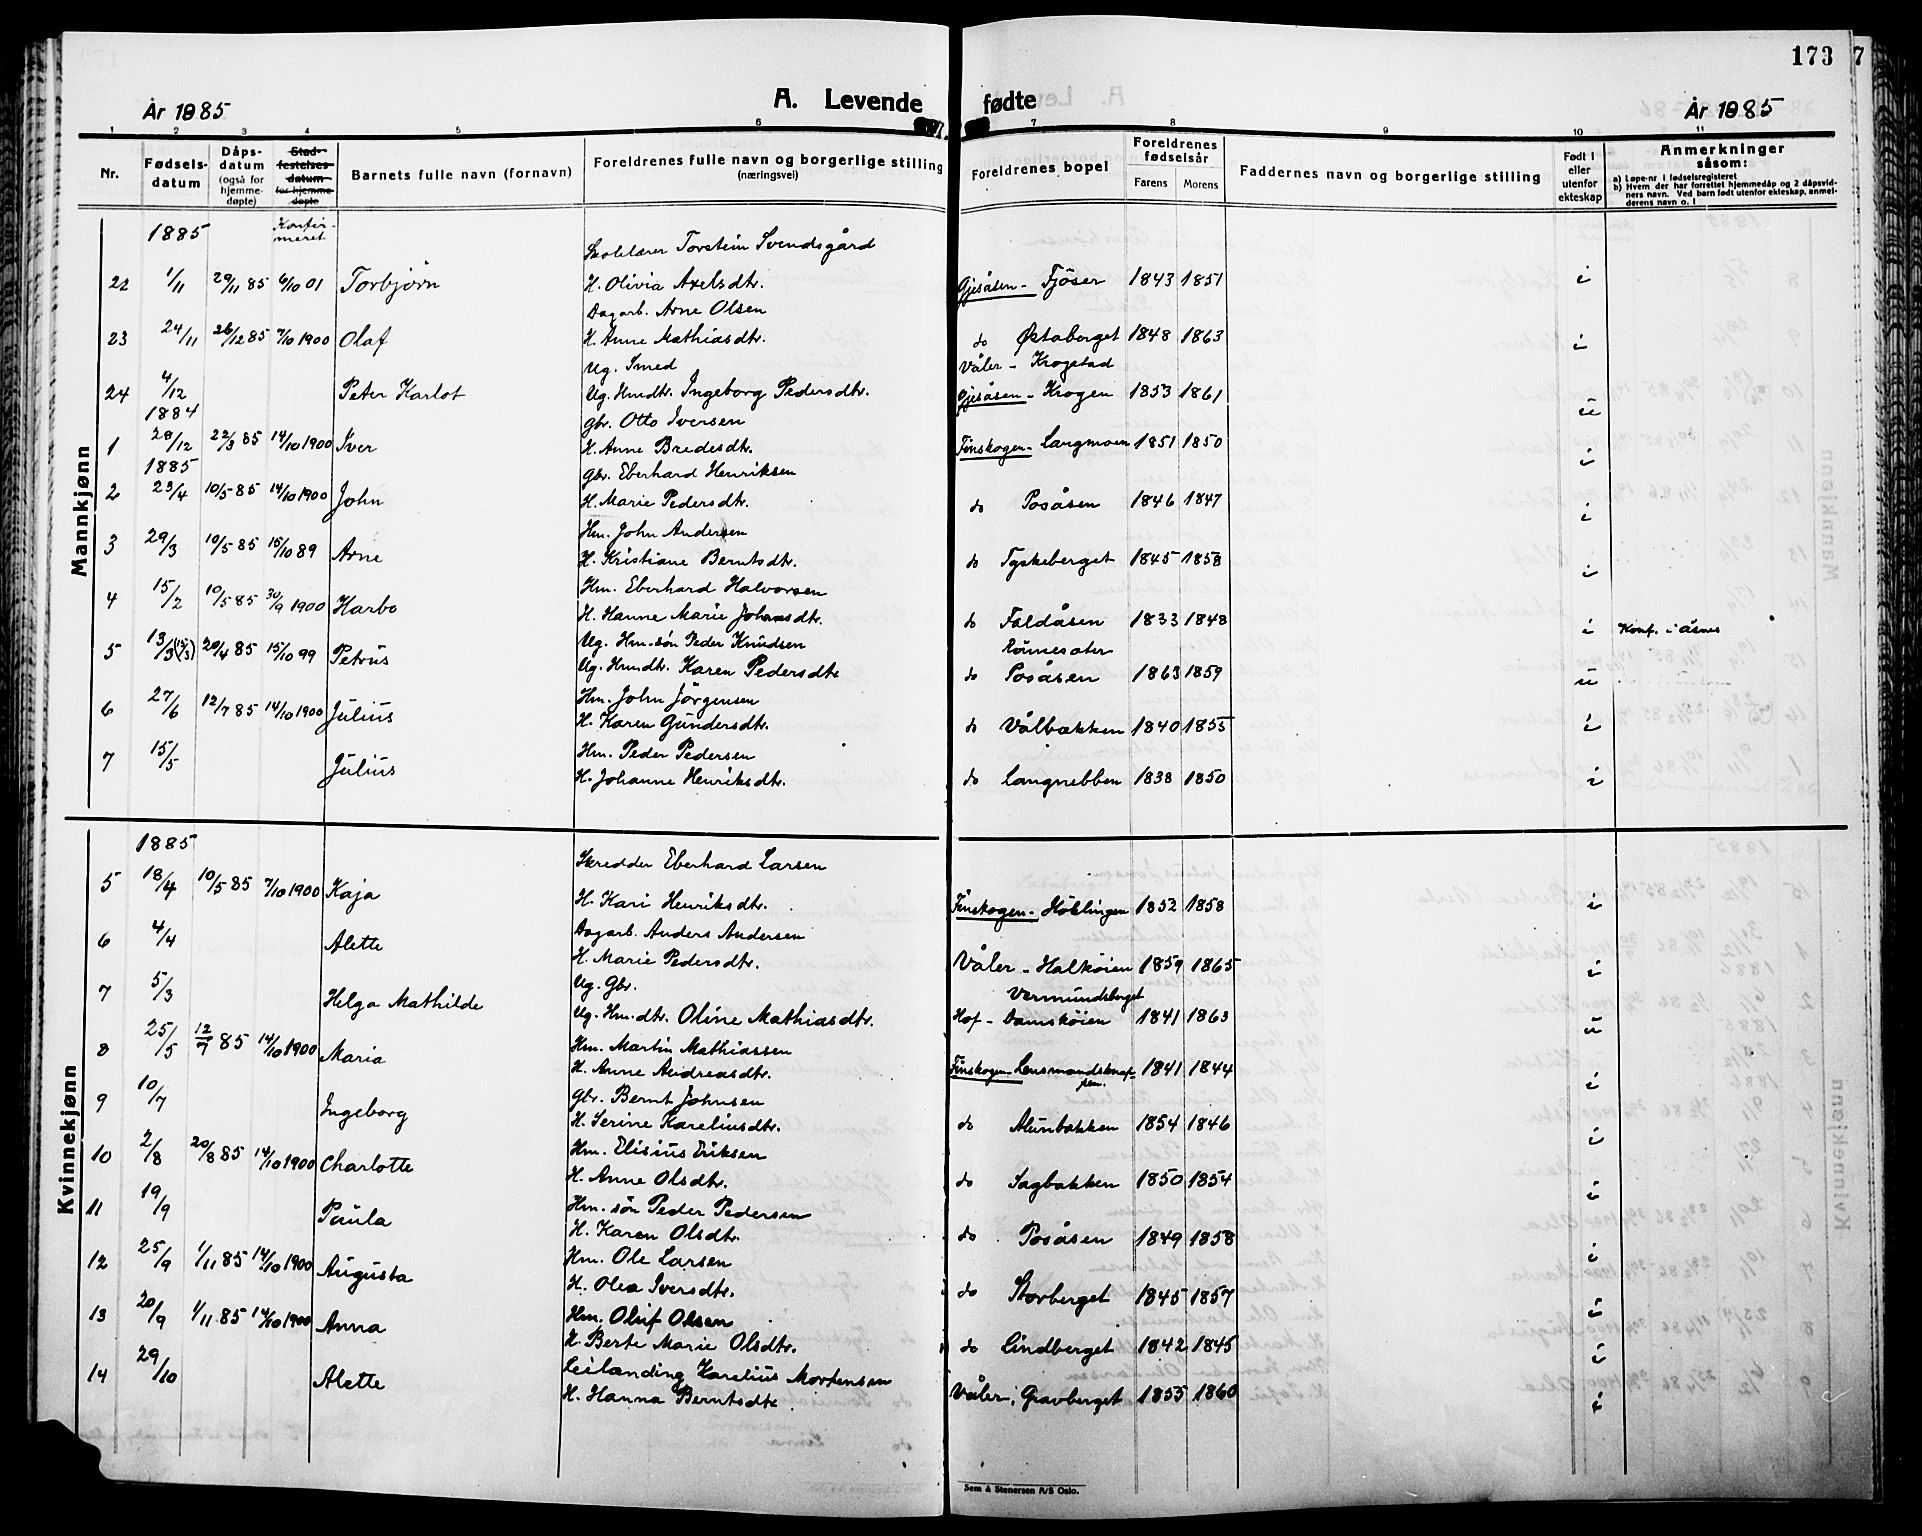 173 7
År 1985 A. Levende fødte År 1985
1 2 3 4 5 6 7 8 9 10 11
Nr. Fødselsdatum Dåpsdatum (også for hjemmedøpte) Stadfestelsesdatum for hjemmedøpte Barnets fulle navn (fornavn) Foreldrenes fulle navn og borgerlige stilling (næringsvei) Foreldrenes bopel Foreldrenes fødselsår Farens Morens Faddernes navn og borgerlige stilling Født i eller utenfor ekteskap Anmerkninger såsom:
a) Løpe-nr i fødselsregisteret
b) Hvem der har forrettet hjemmedåp og 2 dåpsvidners navn. Ved barn født utenfor ekteskap, anmelderens navn o. l
Mankjønn
1885 Konfirmeret
Skolelærer Torstein Svendsgård
22 1/11 29/11 85 6/10 01 Torbjørn H. Olivia Axelsdtr. Gjesåsen - Fjöser 1843 1851 i
Dagarb. Arne Olsen
23 24/11 26/12 85 7/10 1900 Olaf H. Anne Mathiasdtr. do Østaberget 1848 1863 i
Ug. Smed Våler - Krogstad
24 4/12 Peter Karlot Ug. Hmdtr. Ingeborg Pedersdtr. Gjesåsen - Krogen 1853 1861 u
1884 Gbr. Otto Iversen
1 28/12 22/3 85 14/10 1900 Iver H. Anne Bredesdtr. Finskogen - Langmoen 1851 1850 i
1885 Gbr. Eberhard Henriksen
2 23/4 10/5 85 14/10 1900 John H. Marie Pedersdtr. do Posåsen 1846 1847 i
Hm. John Andersen
3 29/3 10/5 85 15/10 89 Arne H. Kristiane Berntsdtr. do Tyskeberget 1845 1858 i
Hm. Eberhard Halvorsen
4 15/2 10/5 85 30/9 1900 Harbo H. Hanne Marie Johansdtr. do Faldåsen 1833 1848 i Konf. i åsnes
Ug. Hm.-søn Peder Knudsen Rönnesæter
5 13/3 (13/3) 20/4 85 15/10 99 Petrus Ug. Hmdtr. Karen Pedersdtr do Posåsen 1863 1859 u
Hm. John Jörgensen
6 27/6 12/7 85 14/10 1900 Julius H. Karen Gundersdtr. do Vålbækken 1840 1855 i
Hm. Peder Pedersen
7 15/5 Julius H. Johanne Henriksdtr. do Langnebben 1838 1850 i
Kvinnekjønn
1885
Skredder Eberhard Larsen
5 18/4 10/5 85 7/10 1900 Kaja H. Kari Henriksdtr. Finskogen - Höklingen 1852 1858 i
Dagarb. Anders Andersen
6 4/4 Alette H. Marie Pedersdtr. Våler - Halköien 1859 1865 i
Ug. Gbr. Vermundsberget
7 5/3 Helga Mathilde Ug. Hm.dtr. Oline Mathiasdtr. Hof - Damsköien 1841 1863 u
Hm. Martin Mathiassen
8 25/5 12/7 85 14/10 1900 Maria H. Anne Andreasdtr. Finskogen - Lensmandsknappen. 1841 1844 i
Gbr. Bernt Johnsen
9 10/7 Ingeborg H. Serine Kareliusdtr. do Alunbækken 1854 1846 i
Hm. Elisius Eriksen
10 2/8 20/8 85 14/10 1900 Charlotte H. Anne Olsdtr. do Sagbækken 1850 1854 i
Hm.-søn Peder Pedersen
11 19/9 Paula H. Karen Olsdtr. do Posåsen 1849 1858 i
Hm. Ole Larsen
12 25/9 1/11 85 14/10 1900 Augusta H. Olea Iversdtr. do Storberget 1845 1857 i
Hm. Oluf Olsen
13 20/9 1/11 85 14/10 1900 Anna H. Berte Marie Olsdtr. do Lindberget 1842 1845 i
Leilænding Karelius Mortensen
14 29/10 Alette H. Hanna Berntsdtr. Våler, Gravberget 1855 1860 i
Sem & Stenersen A/S Oslo.